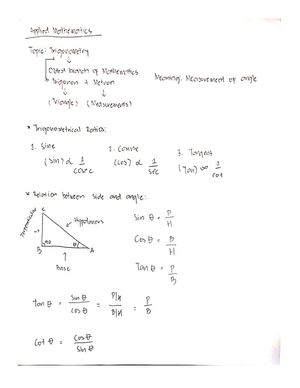 Applied Mathematics
Topic: Trigonometry
Oldest branch of Mathematics
Trigonon + Metron
Meaning: Measurement of angle
(Triangle) (Measurements)
* Trigonometrical Ratios:
1. Sine 2. Cosine 3. Tangent
(Sin) ∝ 1/cosec (cos) ∝ 1/sec (Tan) ∝ 1/cot
* Relation between side and angle:
C
Perpendicular
Hypotenuse
90
θ
B A
Base
Sin θ = P/H
Cos θ = B/H
Tan θ = P/B
Tan θ = Sin θ/cos θ = P/H/B/H = P/B
Cot θ = Cos θ/Sin θ